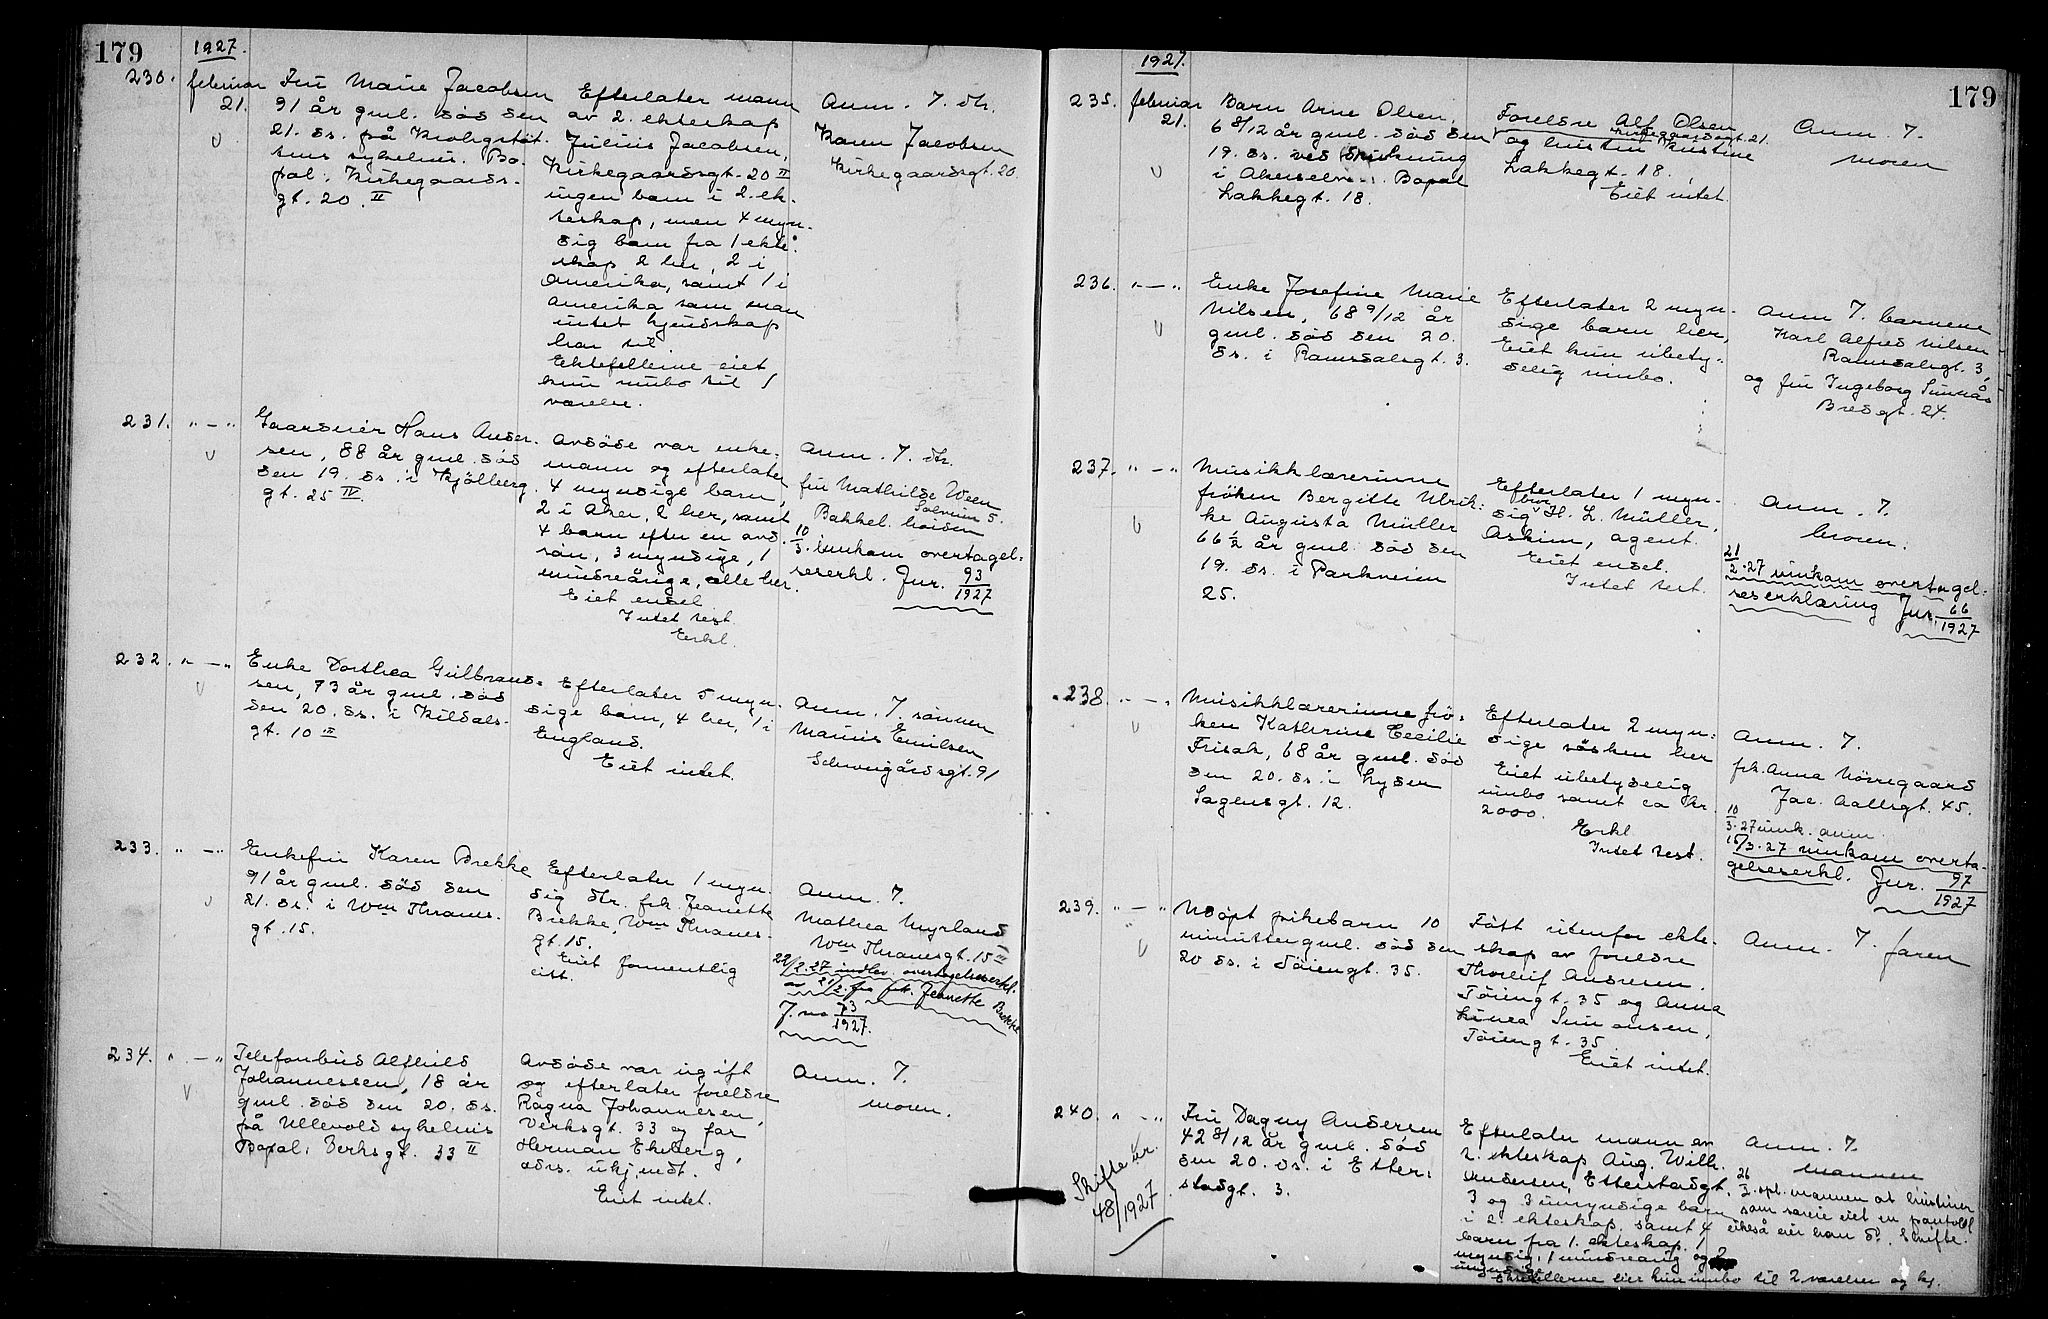 179
1927.
230.
februar
21.
Fru Marie Jacobsen
91 år gml. död den
21. ds. på Krohgstöt-
tens sykehus. Bo-
pæl: Kirkegaards-
gt. 20. II
Efterlater mann
av 2. ekteskap
Julius Jacobsen,
Kirkegaardsgt. 20 II
ingen barn i 2. ek-
teskap, men 4 myn-
dig barn fra 1 ekte-
skap 2 her, 2 i
Amerika, samt 1 i
Amerika som man
intet kjendskap
har til
Ektefellerne eiet
kun inbo til 1
værelse.
Anm. 7. dtr.
Karen Jacobsen
Kirkegaardsgt. 20.
231.
" — "
Gaardeier Hans Ander-
sen, 88 år gml. död
den 19. ds. i Kjölberg
gt. 25 IV.
Avdöde var enke-
mann og efterlater
4 myndige barn,
2 i Aker, 2 her, samt
4 barn efter en avd.
sön, 3 myndige, 1
mindreårige, alle her.
Eiet endel
Intet test.
Erkl.
Anm. 7. dtr.
fru Mathilde Ween
Solveien 5.
Bækkel. höiden
10/3. innkom overtagel-
seserkl. Jur. 93/1927
232.
" — "
Enke Dorthea Gulbrand-
sen, 73 år gml. död
den 20. ds. i Kildals-
gt. 10 II
Efterlater 5 myn-
dige barn, 4 her, 1 i
England.
Eiet intet.
Anm. 7. sönnen
Marius Emilsen
Schweigårdsgt. 91
233.
" — "
Enkefru Karen Brekke
91 år gml. död den
21. ds. i Wm Thranes-
gt. 15.
Efterlater 1 myn-
dig dtr. frk. Jeanette
Brekke, Wm Thranes-
gt. 15.
Eiet formentlig
litt.
Anm. 7.
Mathea Myrland
Wm Thranesgt. 15 II
22/2.27 indlev. overtagelseserkl.
av 21/2. fra frk. Jeanette Brekke
J. no 73/1927.
234.
" — "
Telefonbud Alfhild
Johannessen, 18 år
gml. död den 20. ds.
på Ullevold sykehus
Bopæl: Verksgt. 33 II
Avdöde var ugift
og efterlater foreldre
Ragna Johannesen,
Verksgt. 33 og far
Herman Ekeberg,
adrs. ukjendt.
Eiet intet.
Anm. 7.
moren.
179
1927.
235.
februar
21.
Barn Arne Olsen,
6 8/12 år gml. död den
19. ds. ved drukning
i Akerselven. Bopæl
Lakkegt. 18.
Foreldre Alf Olsen
Kirkegaardsgt. 21.
og hustru Kristine
Lakkegt. 18.
Eiet intet.
Anm. 7.
moren
236.
" — "
Enke Josefine Marie
Nilsen, 68 9/12 år
gml. död den 20.
ds. i Ramsdalsgt. 3.
Efterlater 2 myn-
dige barn her,
Eiet kun ubety-
delig innbo.
Anm. 7. barnene
Karl Alfred Nilsen
Ramsdalsgt. 3,
og fru Ingeborg
Bredgt. 24.
237.
" — "
Musikklærerinne
fröken Bergitte Ulrik-
ke Augusta Müller
66 1/2 år gml. död den
19. ds. i Parkveien
25.
Efterlater 1 myn-
dig bror H. L. Müller,
Askim, agent.
Eiet endel.
Intet test.
Anm. 7.
broren.
21/2.27 innkom overtagel-
seserklæring Jur. 66/1927
238.
" — "
Musikklærerinne frö-
ken Kathrine Cecilie
Frisak, 68 år gml. död
den 20. ds. i Lyder
Sagensgt. 12.
Efterlater 2 myn-
dige söskен her
Eiet ubetydelig
innbo samt ca kr.
2000.
Erkl
Intet test.
Anm. 7.
frk. Anna Nörregaard
Jac. Aallsgt. 45.
10/3.27 innk. anm.
15/3.27 innkom overta-
gelseserkl. Jur. 97/1927
239.
" — "
Udöpt pikebarn 10
minutter gml. död den
20 ds. i Töiengt. 35.
Född utenfor ekte-
skap av foreldre
Thorleif Andresen.
Töiengt. 35 og Anna
Linea Simonsen,
Töiengt. 35
Eiet intet.
Anm. 7. faren
240.
" — "
Skifte kr.
48/1927
Fru Dagny Andersen
42 8/12 år gml. död
den 20. ds. i Etter-
stadgt. 3.
Efterlater mann av
2. ekteskap Aug. Wilh.
Andersen, Etterstadgt.
3 og 3 umyndige barn
i 2. ekteskap, samt 4
barn fra 1. ekteskap, 1
myndig, 1 mindreårig og 2
umyndige
Ektefellerne eier kun innbo til 2 værelser og kj.
Anm. 7.
mannen
26/2. opl. mannen at hustruen
som særeie eiet en
eiker eier han do. Skifte.